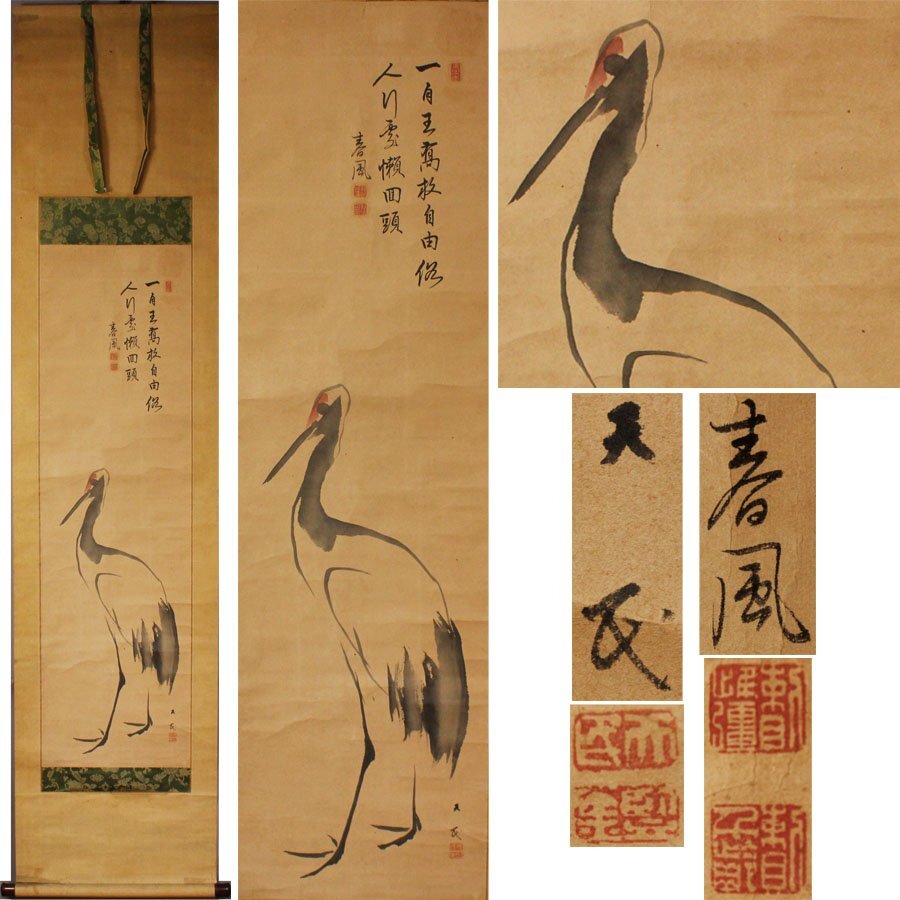 一自王喬放自由俗
人行處懶回頭
春風
天民
一自王喬放自由俗
人行處懶回頭
春風
天民
天民
春風